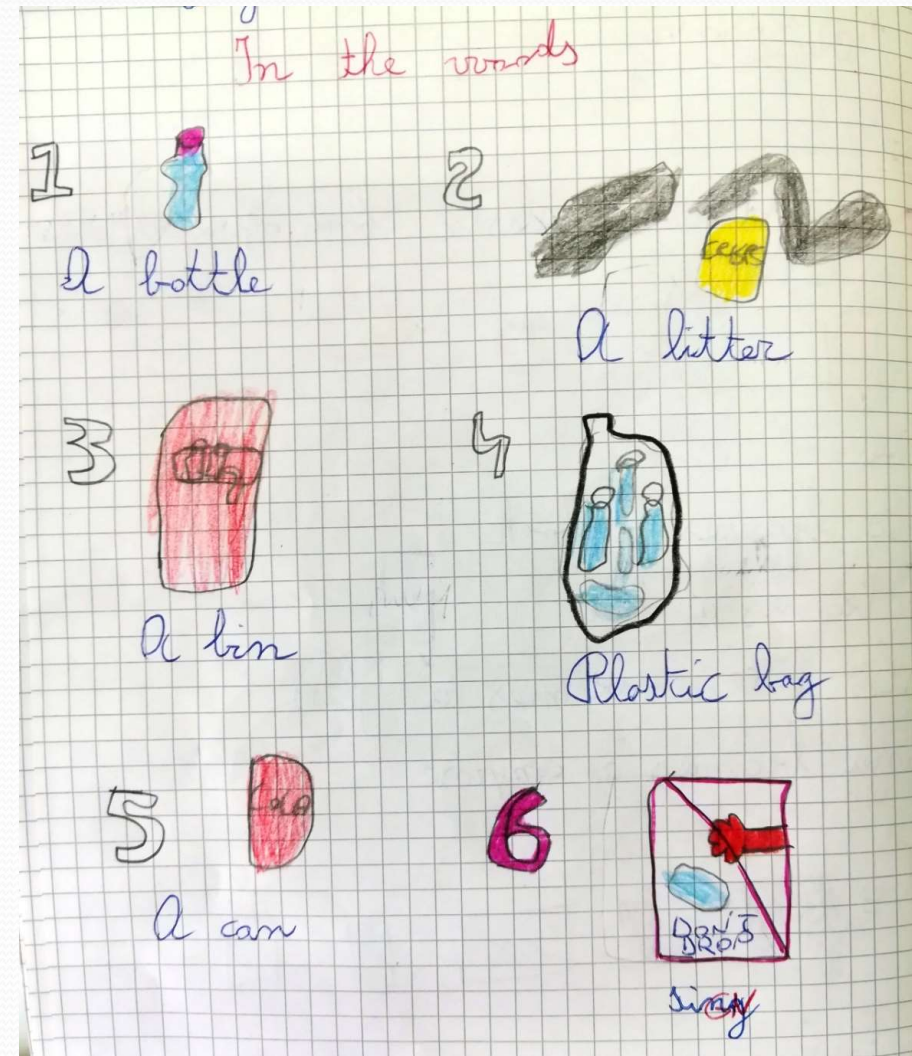 In the woods
1
2
A bottle
A litter
3
4
A bin
Plastic bag
5
6
A can
DON'T
DROP